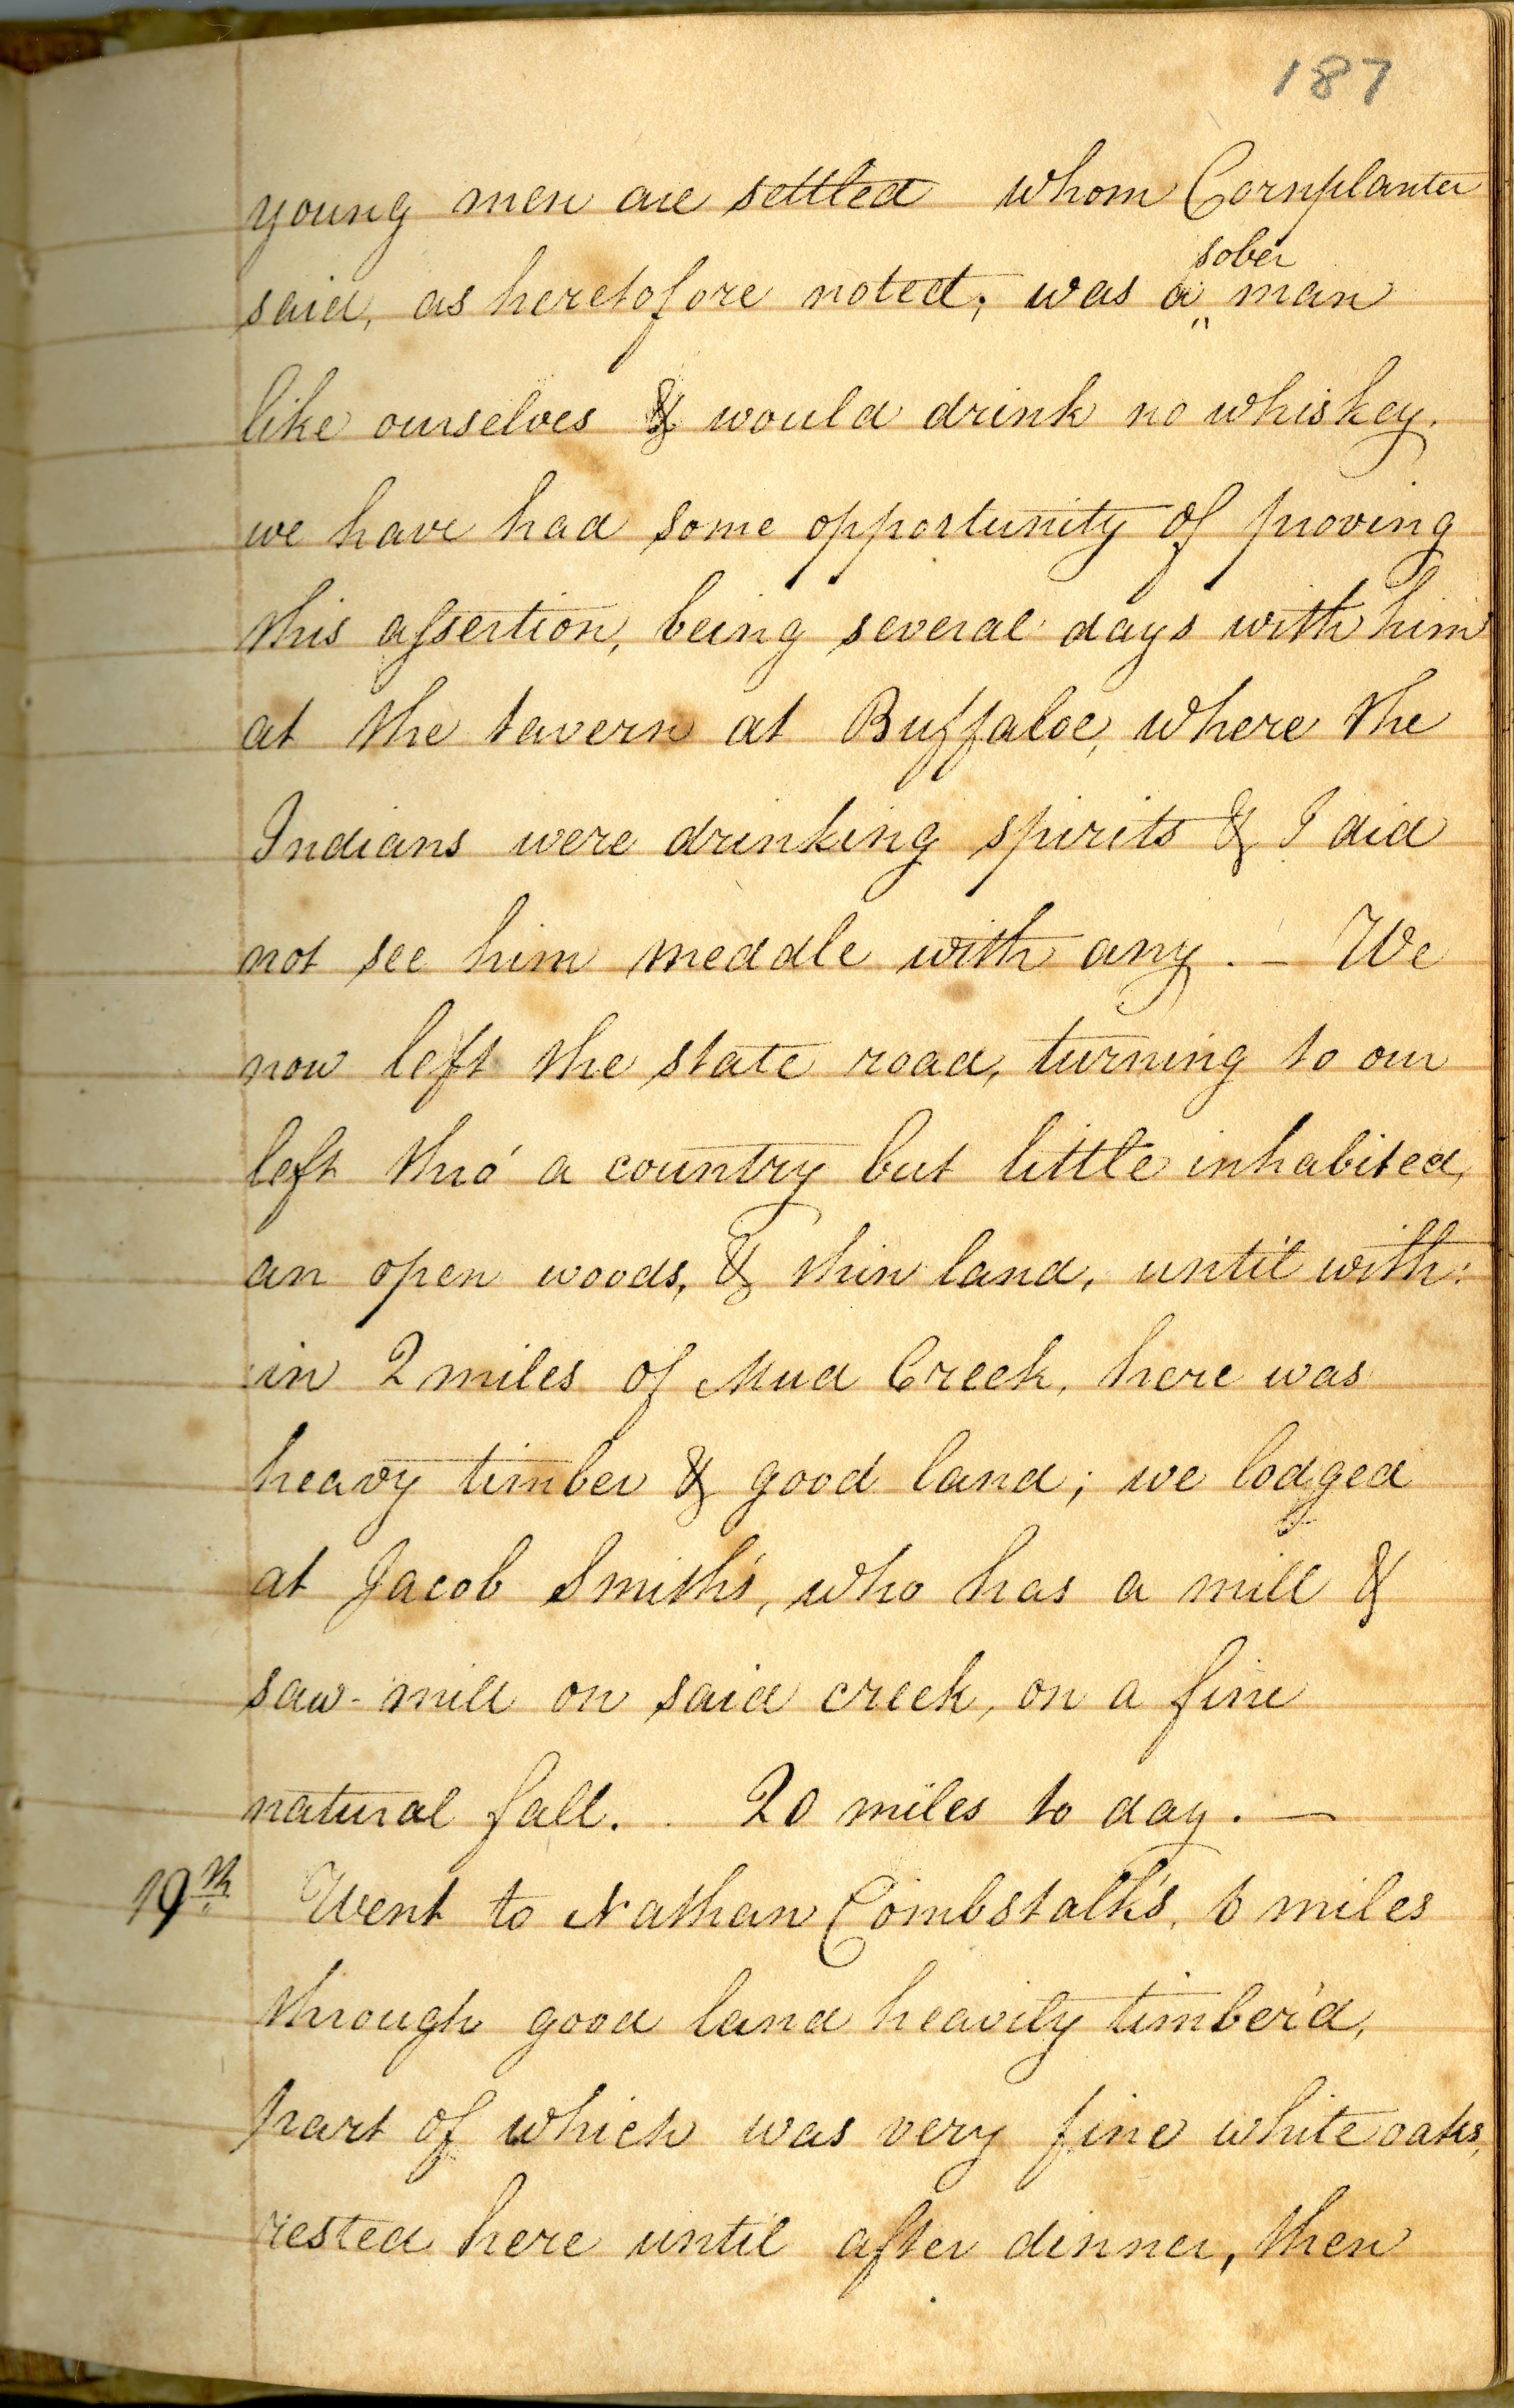 187
young men are settled whom Cornplanter
sober
said, as heretofore noted, was a man
like ourselves & would drink no whiskey.
we have had some opportunity of proving
this assertion, being several days with him
at the tavern at Buffaloe, where the
Indians were drinking spirits & I did
not see him meddle with any. – We
now left the state road, turning to our
left thro' a country but little inhabited,
an open woods, & thin land, until with:
:in 2 miles of Mud Creek, here was
heavy timber & good land; we lodged
at Jacob Smith's, who has a mill &
saw-mill on said creek, on a fine
natural fall. 20 miles to day. —
19th Went to Nathan Combstalk's, 6 miles
through good land heavily timber'd,
part of which was very fine white oaks,
rested here until after dinner, then